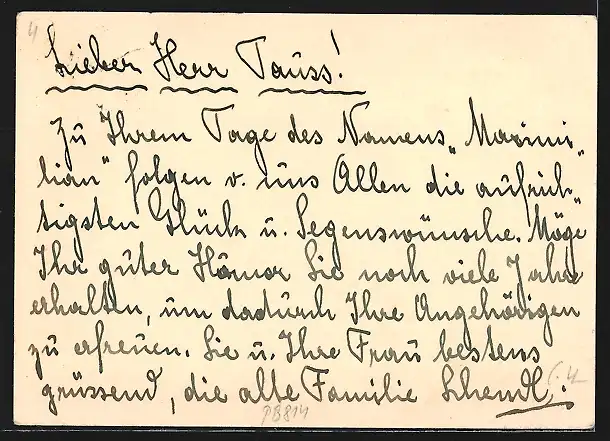 4
Lieber Herr Tauss!
Zu Ihrem Tage des Namens „Maximi„
lian" folgen v. uns Allen die aufrich„
tigsten Glück u. Segenswünsche. Möge
Ihr guter Humor Sie noch viele Jahre
erhalten, um dadurch Ihre Angehörigen
zu erfreuen. Sie u. Ihre Frau bestens
grüssend, die alte Familie Schendl.
PB814